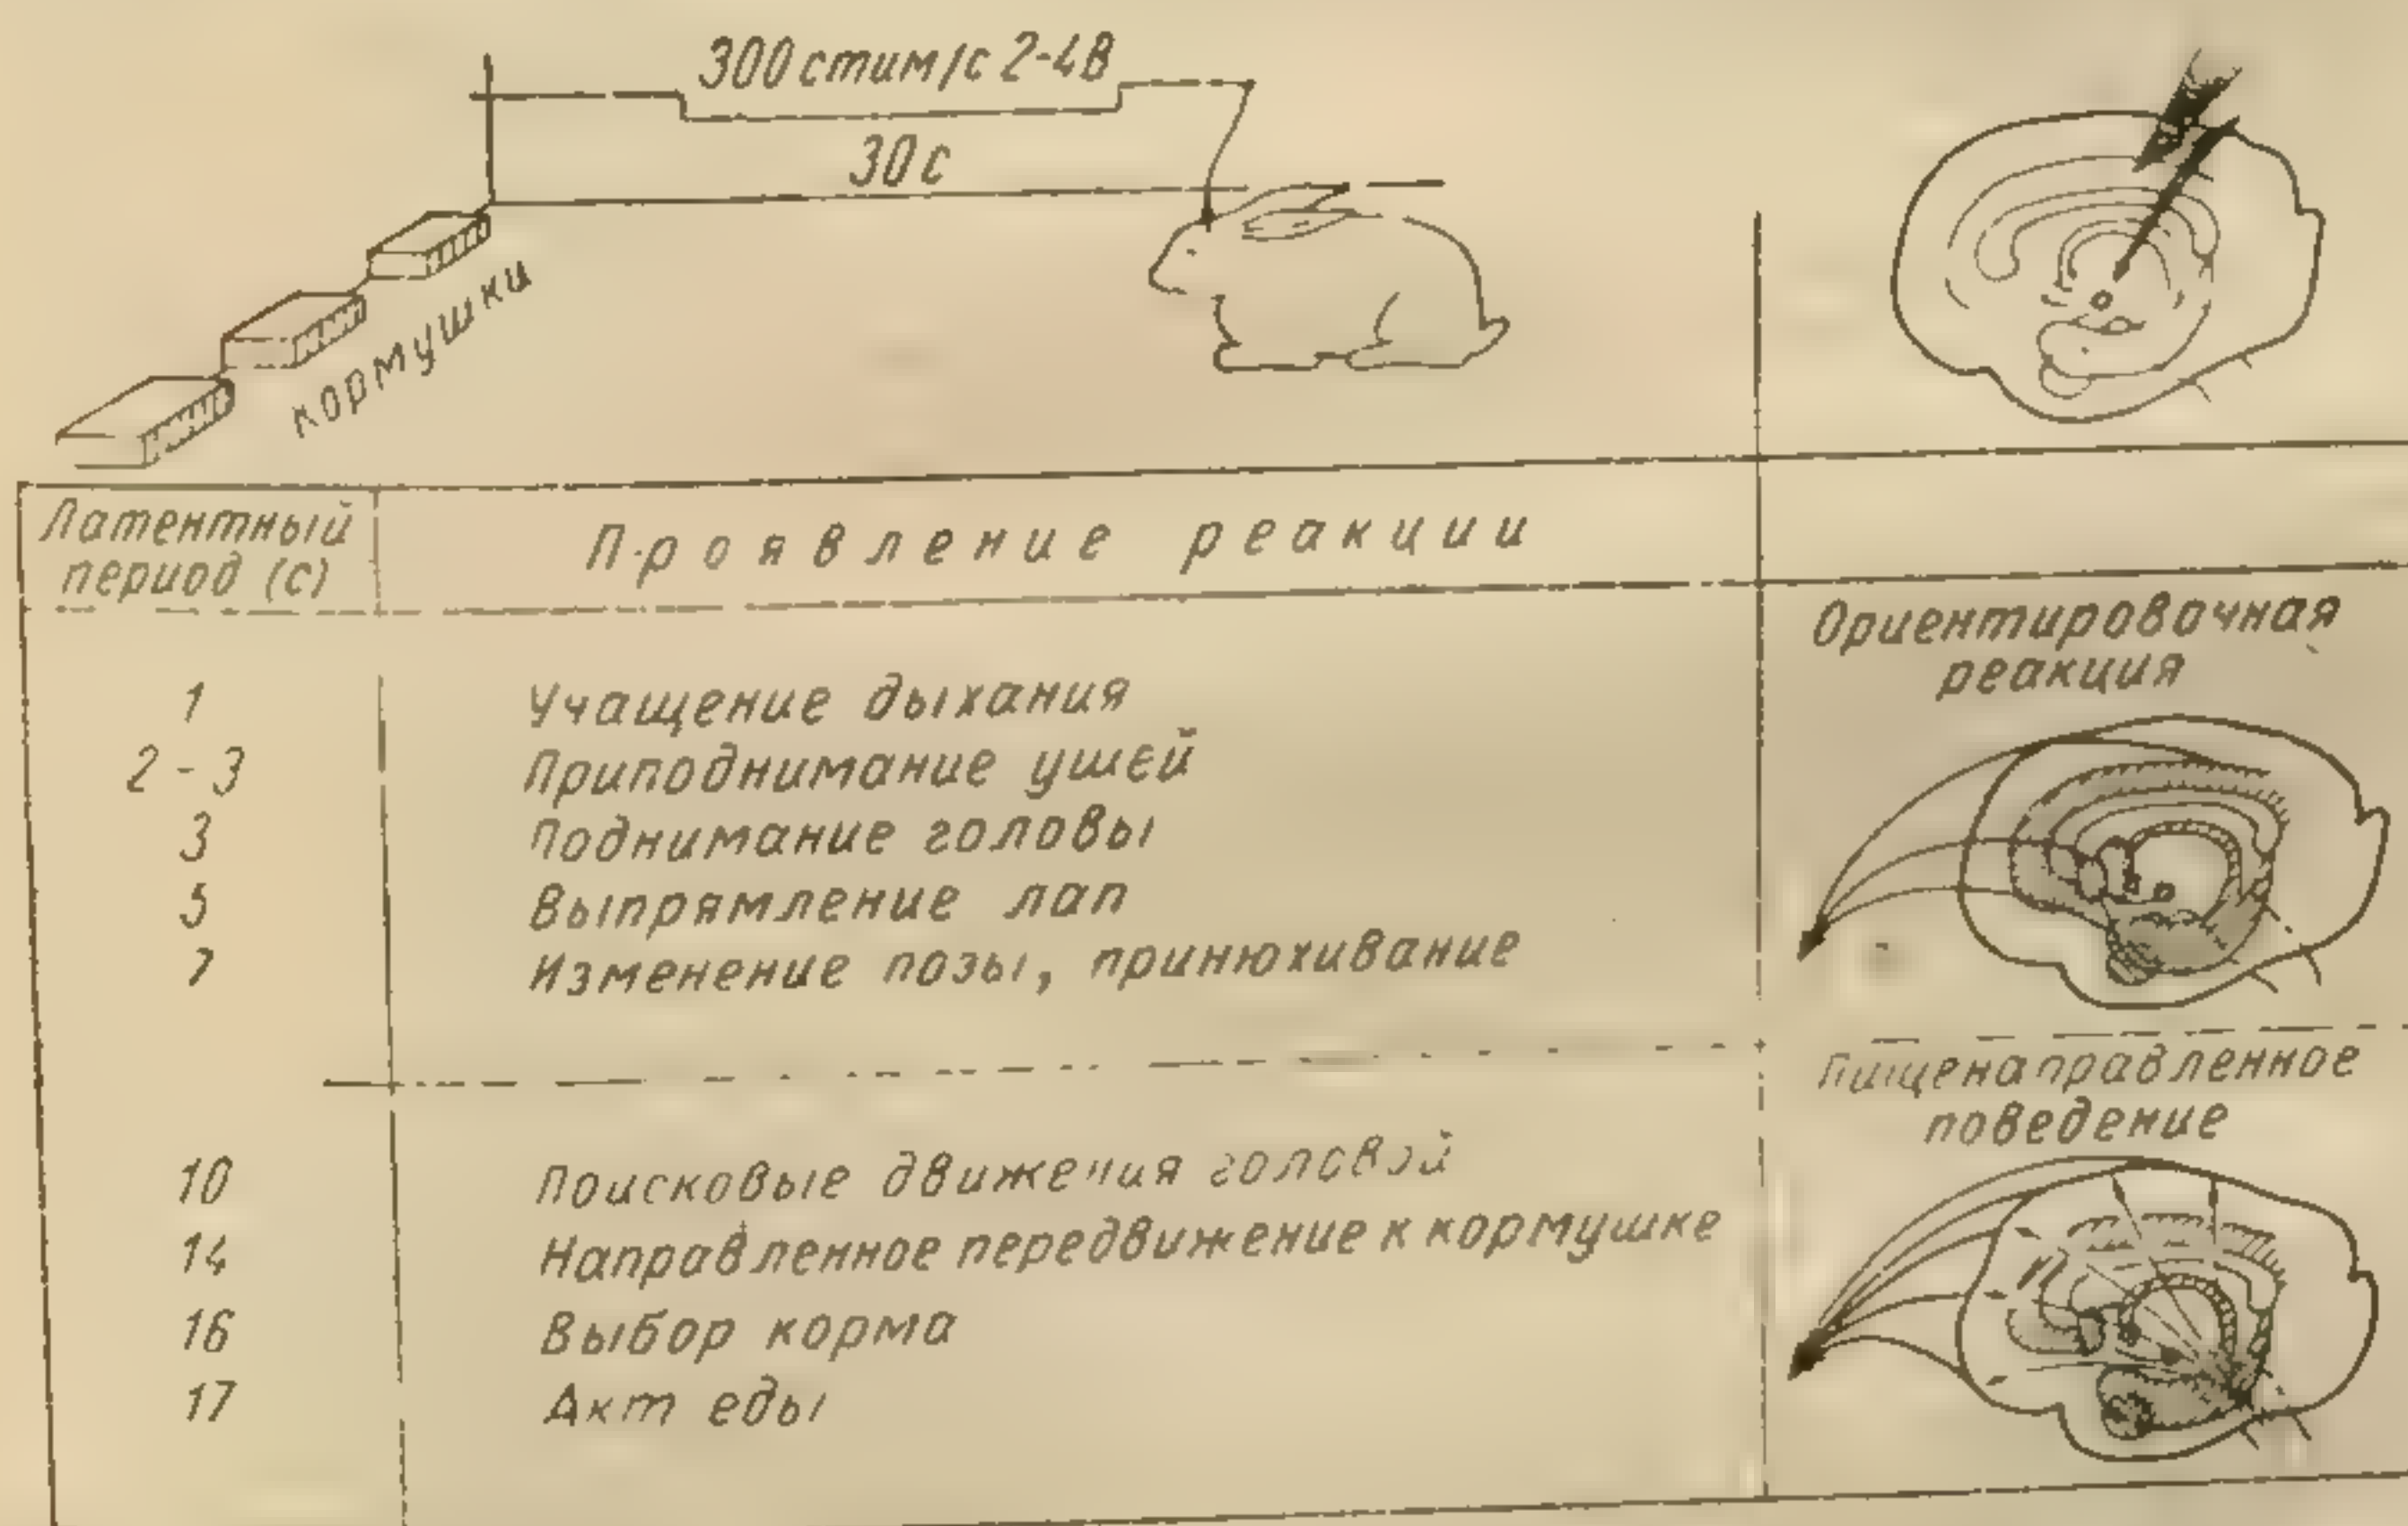 300 стим/с 2-4В
30 с
кормушки
Латентный
период (с)
Проявление реакции
Ориентировочная
реакция
1 Учащение дыхания
2-3 Приподнимание ушей
3 Поднимание головы
5 Выпрямление лап
7 Изменение позы, принюхивание
Пищенаправленное
поведение
10 Поисковые движения головой
14 Направленное передвижение к кормушке
16 Выбор корма
17 Акт еды